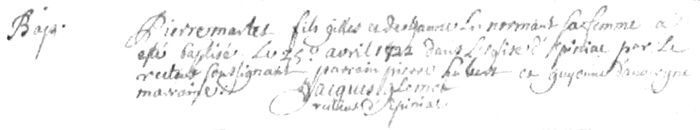 Bap. Pierre martet fils gilles et de jeanne Le normant sa femme a
esté baptisé Le 25e avril 1722 dans L'eglise d'Epiniac par Le
recteur soussignant parrain pierre hubert et guyonne
marraine. Jacques
recteur d'Epiniac